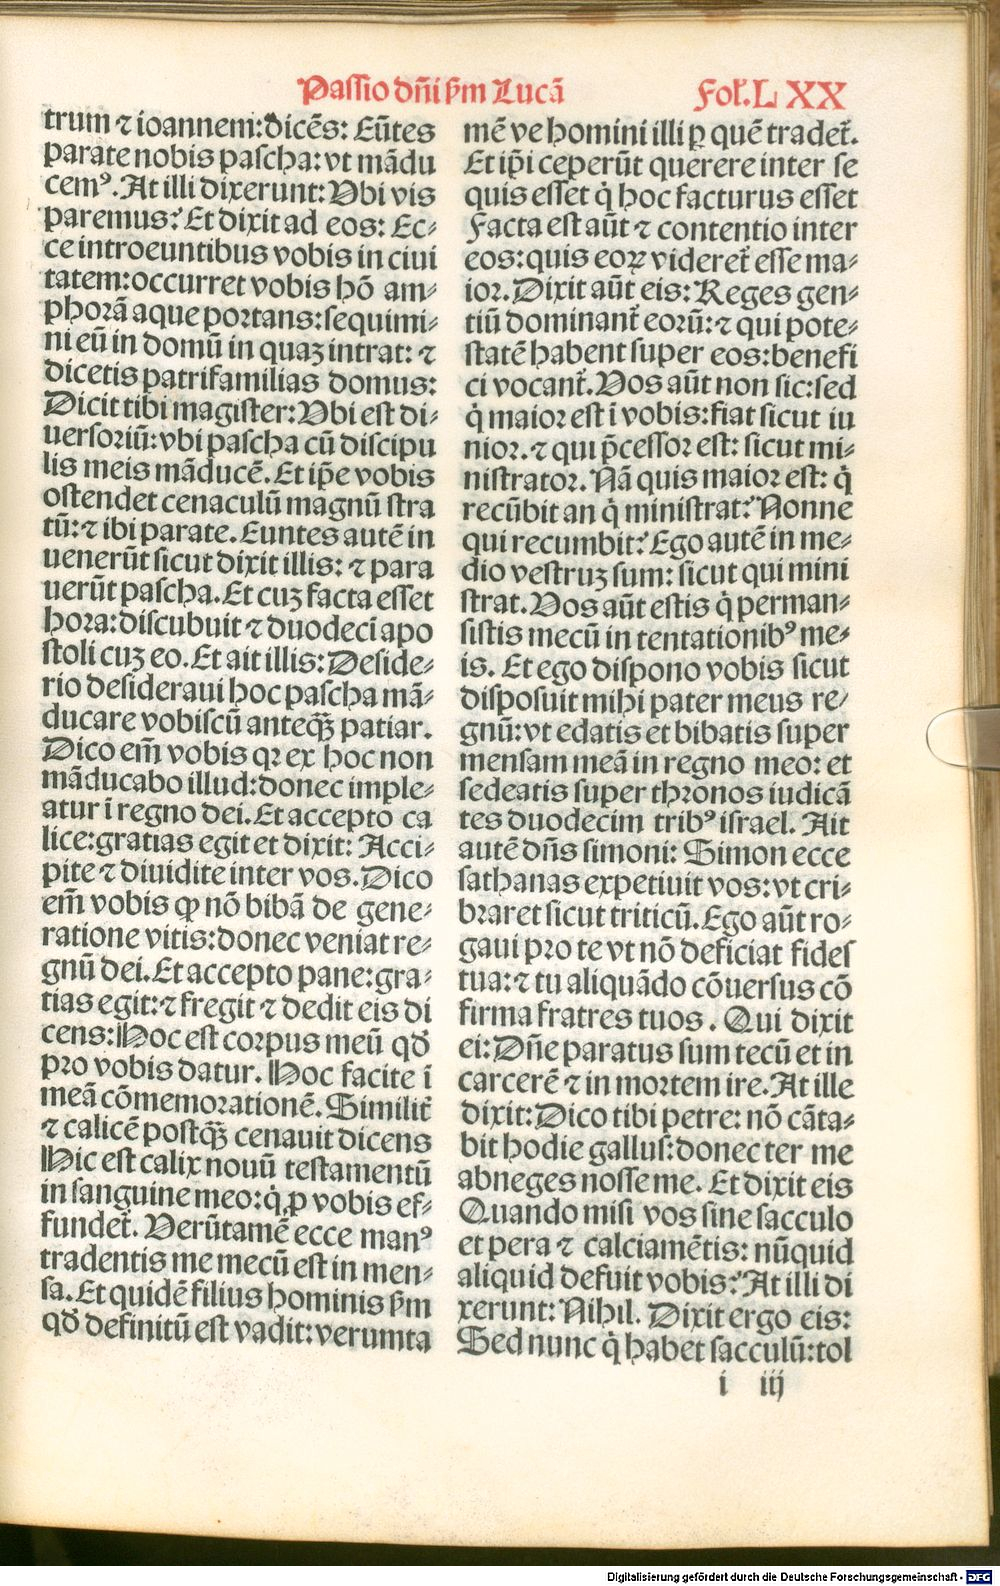 Passio dñi ßm Lucã
Fol'. L XX
trum ⁊ ioannem: dicẽs: Eũtes
parate nobis pascha: vt mãdu
cemꝰ. At illi dixerunt: Vbi vis
paremus? Et dixit ad eos: Ec⸗
ce introeuntibus vobis in ciui
tatem: occurret vobis hõ am⸗
phorã aque portans: sequimi⸗
ni eũ in domũ in quaꝫ intrat: ⁊
dicetis patrifamilias domus:
Dicit tibi magister: Vbi est di⸗
uersoriũ: vbi pascha cũ discipu
lis meis mãducẽ. Et ip̃e vobis
ostendet cenaculũ magnũ stra
tũ: ⁊ ibi parate. Euntes autẽ in
uenerũt sicut dixit illis: ⁊ para
uerũt pascha. Et cuꝫ facta esset
hora: discubuit ⁊ duodecĩ apo
stoli cuꝫ eo. Et ait illis: Deside⸗
rio desideraui hoc pascha mã⸗
ducare vobiscũ anteqꝫ̃ patiar.
Dico em̃ vobis qꝛ ex hoc non
mãducabo illud: donec imple⸗
atur ĩ regno dei. Et accepto ca
lice: gratias egit et dixit: Acci⸗
pite ⁊ diuidite inter vos. Dico
em̃ vobis ꝙ nõ bibã de gene⸗
ratione vitis: donec veniat re⸗
gnũ dei. Et accepto pane: gra⸗
tias egit: ⁊ fregit ⁊ dedit eis di
cens: Hoc est corpus meũ qđ
pro vobis datur. Hoc facite ĩ
meã cõmemorationẽ. Similit̃
⁊ calicẽ postqꝫ̃ cenauit dicens
Hic est calix nouũ testamentũ
in sanguine meo: q̇ ꝓ vobis ef⸗
fundet̃. Verũtamẽ ecce manꝰ
tradentis me mecũ est in men⸗
sa. Et quidẽ filius hominis ßm
qđ definitũ est vadit: verumta
mẽ ve homini illi ꝑ quẽ tradet̃.
Et ip̃i ceperũt querere inter se
quis esset q̇ hoc facturus esset
Facta est aũt ⁊ contentio inter
eos: quis eoꝝ videret̃ esse ma⸗
ior. Dixit aũt eis: Reges gen⸗
tiũ dominant̃ eorũ: ⁊ qui pote⸗
statẽ habent super eos: benefi
ci vocant̃. Vos aũt non sic: sed
q̇ maior est ĩ vobis: fiat sicut iu
nior. ⁊ qui p̃cessor est: sicut mi⸗
nistrator. Nã quis maior est: q̇
recũbit an q̇ ministrat? Nonne
qui recumbit? Ego autẽ in me⸗
dio vestruꝫ sum: sicut qui mini
strat. Vos aũt estis q̇ perman⸗
sistis mecũ in tentationibꝰ me⸗
is. Et ego dispono vobis sicut
disposuit mihi pater meus re⸗
gnũ: vt edatis et bibatis super
mensam meã in regno meo: et
sedeatis super thronos iudicã
tes duodecim tribꝰ israel. Ait
autẽ dñs simoni: Simon ecce
sathanas expetiuit vos: vt cri⸗
braret sicut triticũ. Ego aũt ro⸗
gaui pro te vt nõ deficiat fides
tua: ⁊ tu aliquãdo cõuersus cõ
firma fratres tuos. Qui dixit
ei: Dñe paratus sum tecũ et in
carcerẽ ⁊ in mortem ire. At ille
dixit: Dico tibi petre: nõ cãta⸗
bit hodie gallus: donec ter me
abneges nosse me. Et dixit eis
Quando misi vos sine sacculo
et pera ⁊ calciamẽtis: nũquid
aliquid defuit vobis? At illi di
xerunt: Nihil. Dixit ergo eis:
Sed nunc q̇ habet sacculũ: tol
i iij
Digitalisierung gefördert durch die Deutsche Forschungsgemeinschaft - DFG